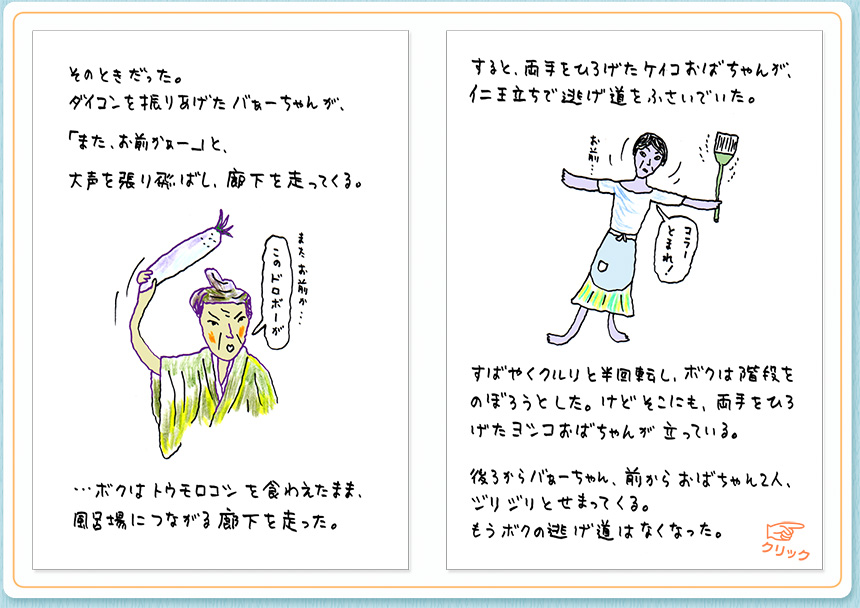 そのときだった。
ダイコンを振りあげたバぁーちゃんが、
「また、お前かぁー」と、
大声を張り飛ばし、廊下を走ってくる。
また お前か…
このドロボーが
…ボクはトウモロコシを食わえたまま、
風呂場につながる廊下を走った。
すると、両手をひろげたケイコおばちゃんが、
仁王立ちで逃げ道をふさいでいた。
お前…
コラー
とまれ!
すばやくクルリと半回転し、ボクは階段を
のぼろうとした。けどそこにも、両手をひろ
げたヨシコおばちゃんが立っている。
後ろからバぁーちゃん、前からおばちゃん2人、
ジリジリとせまってくる。
もうボクの逃げ道はなくなった。
クリック